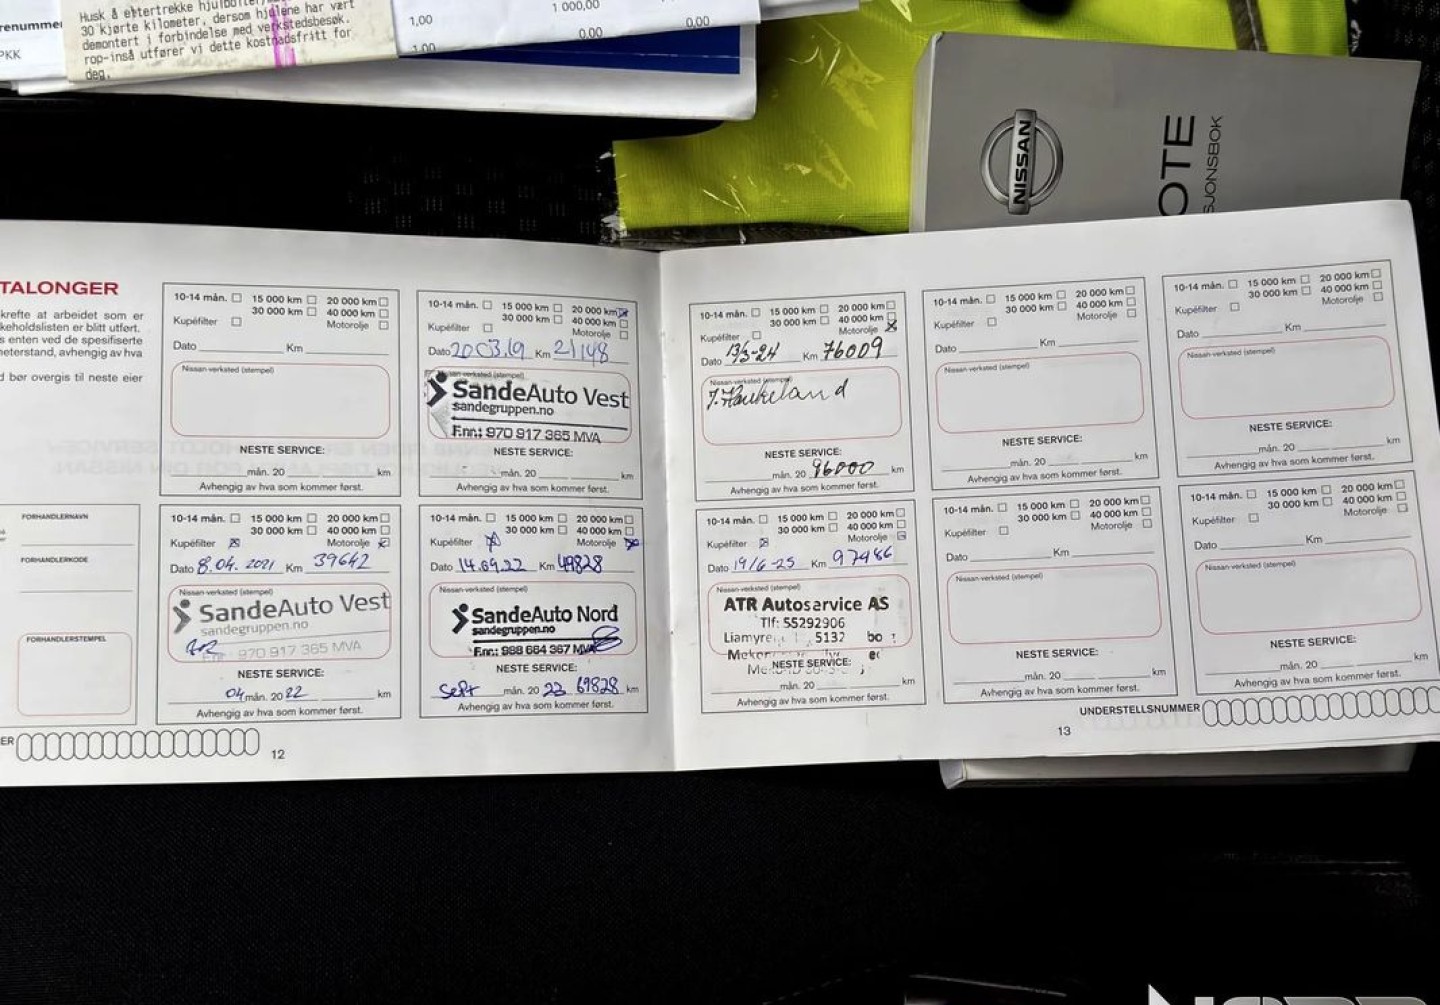 renummer
PKK
Husk å ettertrekke hjulbolter
30 kjørte kilometer, dersom hjulene har vært
demontert i forbindelse med verkstedsbesøk.
rop-inså utfører vi dette kostnadsfritt for
deg.
1,00 1 000,00
0,00 0,00
1,00
NISSAN
OTE
SJONSBOK
TALONGER
krefte at arbeidet som er
keholdslisten er blitt utført.
s enten ved de spesifiserte
meterstand, avhengig av hva
d bør overgis til neste eier
FORHANDLERNAVN
FORHANDLERKODE
FORHANDLERSTEMPEL
ER
10-14 mån. 15 000 km 20 000 km
30 000 km 40 000 km
Kupéfilter Motorolje
Dato Km
Nissan-verksted (stempel)
NESTE SERVICE:
mån. 20 km
Avhengig av hva som kommer først.
10-14 mån. 15 000 km 20 000 km
30 000 km 40 000 km
Kupéfilter Motorolje
Dato 20.03.19 Km 21148
SandeAuto Vest
sandegruppen.no
F.nr.: 970 917 365 MVA
NESTE SERVICE:
mån. 20 km
Avhengig av hva som kommer først.
10-14 mån. 15 000 km 20 000 km
30 000 km 40 000 km
Kupéfilter Motorolje
Dato 8.04.2021 Km 39642
Nissan-verksted (stempel)
SandeAuto Vest
sandegruppen.no
F.nr.: 970 917 365 MVA
NESTE SERVICE:
04 mån. 20 22 km
Avhengig av hva som kommer først.
10-14 mån. 15 000 km 20 000 km
30 000 km 40 000 km
Kupéfilter Motorolje
Dato 14.09.22 Km 49828
Nissan-verksted (stempel)
SandeAuto Nord
sandegruppen.no
F.nr.: 988 664 367 MVA
NESTE SERVICE:
Sept mån. 20 23 69828 km
Avhengig av hva som kommer først.
12
10-14 mån. 15 000 km 20 000 km
30 000 km 40 000 km
Kupéfilter Motorolje
Dato 13/3-24 Km 76009
Nissan-verksted (stempel)
J. Haukeland
NESTE SERVICE:
mån. 20 96000 km
Avhengig av hva som kommer først.
10-14 mån. 15 000 km 20 000 km
30 000 km 40 000 km
Kupéfilter Motorolje
Dato Km
Nissan-verksted (stempel)
NESTE SERVICE:
mån. 20 km
Avhengig av hva som kommer først.
10-14 mån. 15 000 km 20 000 km
30 000 km 40 000 km
Kupéfilter Motorolje
Dato Km
Nissan-verksted (stempel)
NESTE SERVICE:
mån. 20 km
Avhengig av hva som kommer først.
10-14 mån. 15 000 km 20 000 km
30 000 km 40 000 km
Kupéfilter Motorolje
Dato 19/6-25 Km 97486
Nissan-verksted (stempel)
ATR Autoservice AS
Tlf: 55292906
5132
NESTE SERVICE:
mån. 20 km
Avhengig av hva som kommer først.
10-14 mån. 15 000 km 20 000 km
30 000 km 40 000 km
Kupéfilter Motorolje
Dato Km
Nissan-verksted (stempel)
NESTE SERVICE:
mån. 20 km
Avhengig av hva som kommer først.
10-14 mån. 15 000 km 20 000 km
30 000 km 40 000 km
Kupéfilter Motorolje
Dato Km
Nissan-verksted (stempel)
NESTE SERVICE:
mån. 20 km
Avhengig av hva som kommer først.
UNDERSTELLSNUMMER
13